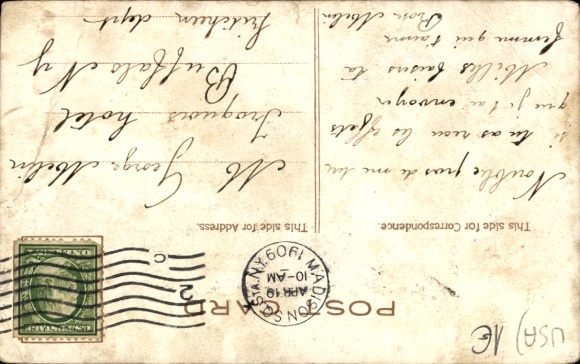 POST CARD
This side for Correspondence.
This side for Address.
MADISON SQ. STA. N.Y.
APR 19
10-AM
1909
C
2
N'oublie pas de me
si tu as recu les effets
que je t'ai envoyer
Milles baisers ta
femme qui t'aime
Rose Melin
M George Melin
Iroquois hotel
Buffalo N y
kitcheen dept
USA) 1€